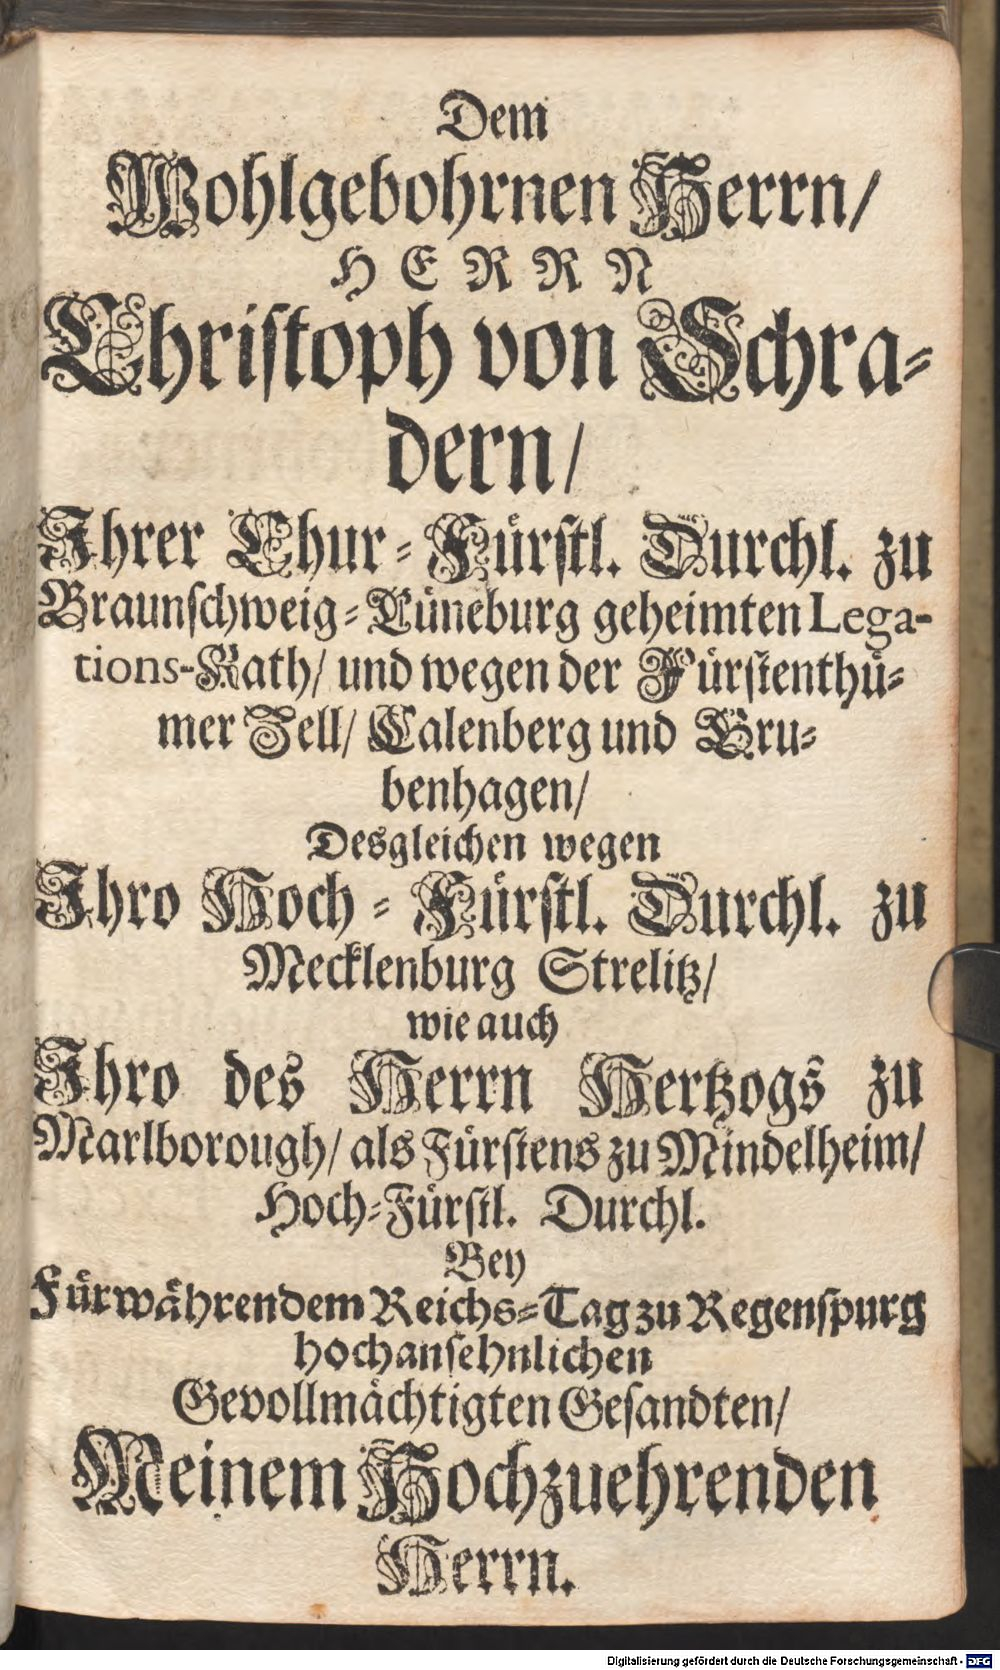 Dem
Wohlgebohrnen Herrn/
HERRN
Christoph von Schra-
dern/
Ihrer Chur-Fürstl. Durchl. zu
Braunschweig-Lüneburg geheimten Lega-
tions-Rath/ und wegen der Fürstenthü-
mer Zell/ Calenberg und Gru-
benhagen/
Desgleichen wegen
Ihro Hoch-Fürstl. Durchl. zu
Mecklenburg Strelitz/
wie auch
Ihro des Herrn Hertzogs zu
Marlborough/ als Fürstens zu Mindelheim/
Hoch-Fürstl. Durchl.
Bey
Fürwährendem Reichs-Tag zu Regenspurg
hochansehnlichen
Gevollmächtigten Gesandten/
Meinem Hochzuehrenden
Herrn.
Digitalisierung gefördert durch die Deutsche Forschungsgemeinschaft - DFG